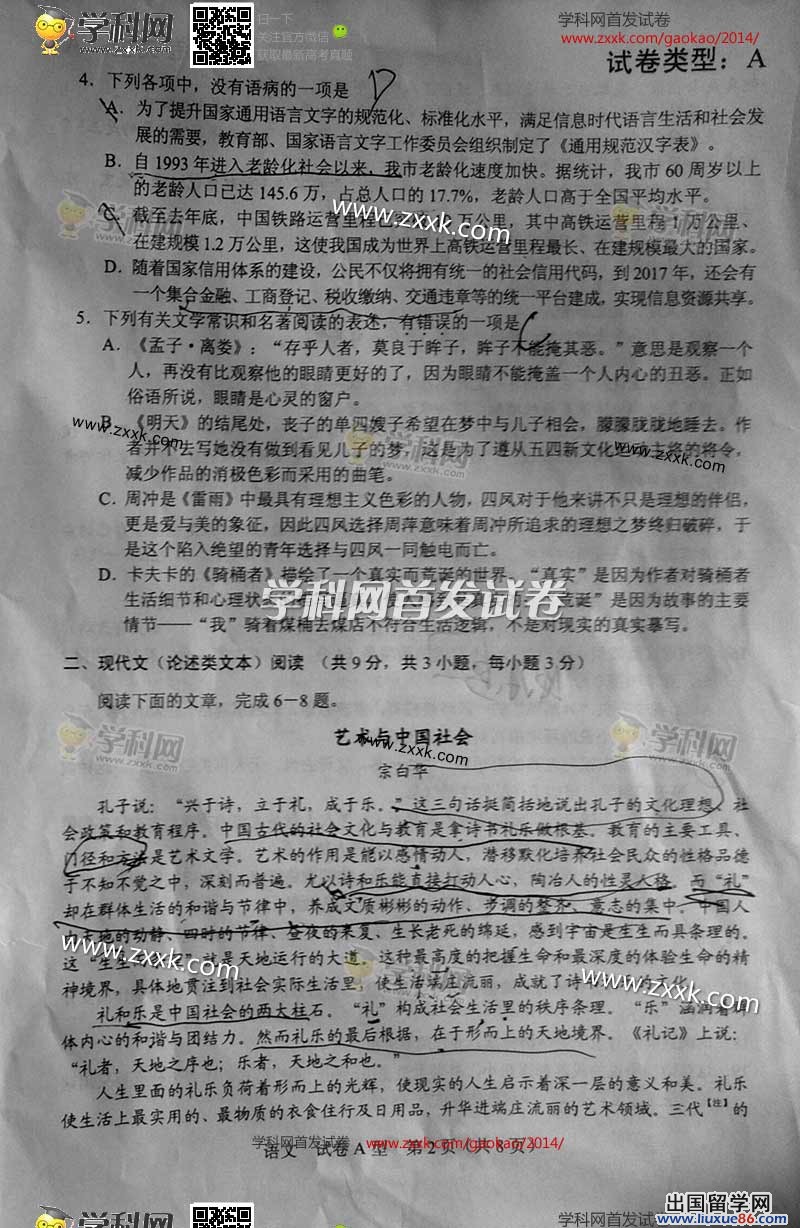 学科网
www.zxxk.com
扫一扫
关注官方微信
获取最新高考真题
学科网首发试卷
www.zxxk.com/gaokao/2014/
试卷类型：A
4．下列各项中，没有语病的一项是 D
A．为了提升国家通用语言文字的规范化、标准化水平，满足信息时代语言生活和社会发
展的需要，教育部、国家语言文字工作委员会组织制定了《通用规范汉字表》。
B．自 1993 年进入老龄化社会以来，我市老龄化速度加快。据统计，我市 60 周岁以上
的老龄人口已达 145.6 万，占总人口的 17.7%，老龄人口高于全国平均水平。
C．截至去年底，中国铁路运营里程 万公里，其中高铁运营里程 1 万公里、
在建规模 1.2 万公里，这使我国成为世界上高铁运营里程最长、在建规模最大的国家。
www.zxxk.com
D．随着国家信用体系的建设，公民不仅将拥有统一的社会信用代码，到 2017 年，还会有
一个集合金融、工商登记、税收缴纳、交通违章等的统一平台建成，实现信息资源共享。
5．下列有关文学常识和名著阅读的表述，有错误的一项是 C
A．《孟子·离娄》：“存乎人者，莫良于眸子，眸子不能掩其恶。”意思是观察一个
人，再没有比观察他的眼睛更好的了，因为眼睛不能掩盖一个人内心的丑恶。正如
俗语所说，眼睛是心灵的窗户。
B．《明天》的结尾处，丧子的单四嫂子希望在梦中与儿子相会，朦朦胧胧地睡去。作
者并不去写她没有做到看见儿子的梦，这是为了遵从五四新文化运动主将的将令，
减少作品的消极色彩而采用的曲笔。
www.zxxk.com
学科网
www.zxxk.com
C．周冲是《雷雨》中最具有理想主义色彩的人物，四凤对于他来讲不只是理想的伴侣，
更是爱与美的象征，因此四凤选择周萍意味着周冲所追求的理想之梦终归破碎，于
是这个陷入绝望的青年选择与四凤一同触电而亡。
D．卡夫卡的《骑桶者》描绘了一个真实而荒诞的世界，“真实”是因为作者对骑桶者
生活细节和心理状 荒诞”是因为故事的主要
情节——“我”骑着煤桶去煤店不符合生活逻辑，不是对现实的真实摹写。
学科网首发试卷
二、现代文（论述类文本）阅读 （共 9 分，共 3 小题，每小题 3 分）
阅读下面的文章，完成 6－8 题。
学科网
艺术与中国社会
www.zxxk.com
宗白华
孔子说：“兴于诗，立于礼，成于乐。”这三句话挺简括地说出孔子的文化理想、社
会政策和教育程序。中国古代的社会文化与教育是拿诗书礼乐做根基。教育的主要工具、
门径和方法是艺术文学。艺术的作用是能以感情动人，潜移默化培养社会民众的性格品德
于不知不觉之中，深刻而普遍。尤以诗和乐能直接打动人心，陶冶人的性灵人格。而“礼”
却在群体生活的和谐与节律中，养成文质彬彬的动作、步调的整齐、意志的集中。中国人
在天地的动静、四时的节律、昼夜的来复、生长老死的绵延，感到宇宙是生生而具条理的。
这“生生 就是天地运行的大道， 这种最高度的把握生命和最深度的体验生命的精
神境界，具体地贯注到社会实际生活里，使生活端庄流丽，成就了诗 的文化。
www.zxxk.com
学科网
www.zxxk.com
礼和乐是中国社会的两大柱石。“礼”构成社会生活里的秩序条理。“乐”涵润着群
体内心的和谐与团结力。然而礼乐的最后根据，在于形而上的天地境界。《礼记》上说：
“礼者，天地之序也；乐者，天地之和也。”
人生里面的礼乐负荷着形而上的光辉，使现实的人生启示着深一层的意义和美。礼乐
使生活上最实用的、最物质的衣食住行及日用品，升华进端庄流丽的艺术领域。三代【注】的
学科网首发试卷
www.zxxk.com/gaokao/2014/
语文 试卷 A 型 第 2 页（共 8 页）
出国留学网
www.liuxue86.com